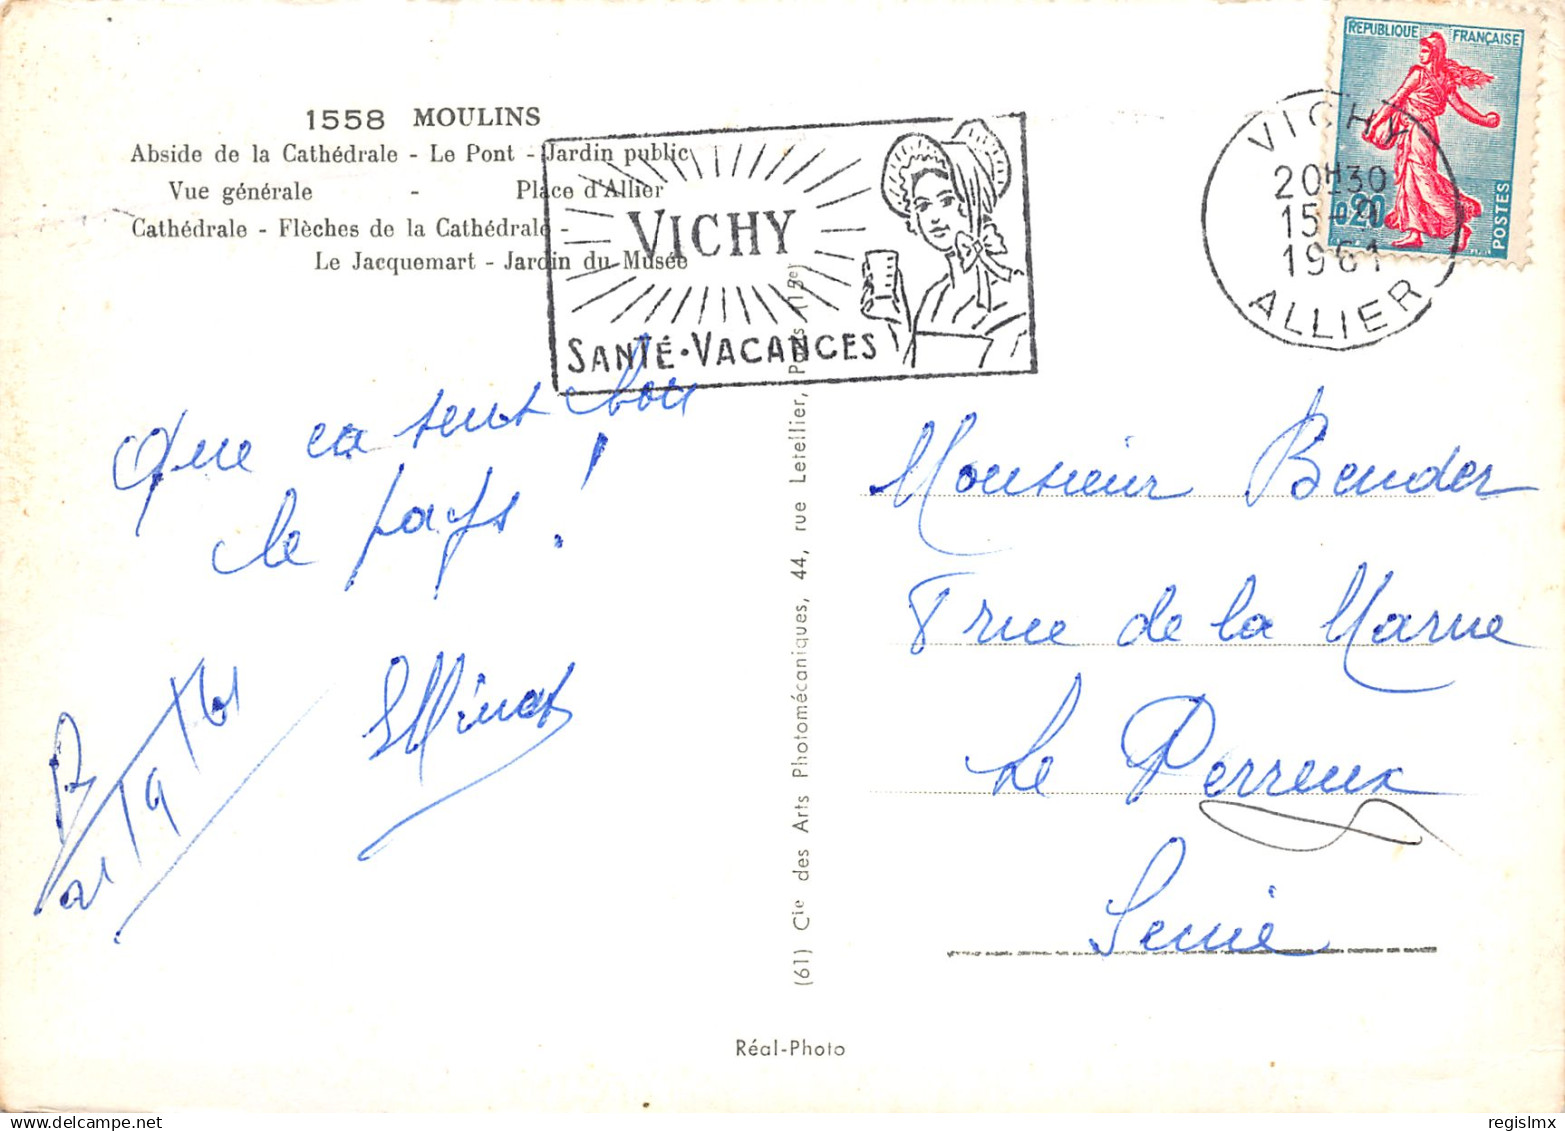 1558 MOULINS
Abside de la Cathédrale - Le Pont - Jardin public
Vue générale - Place d'Allier
Cathédrale - Flèches de la Cathédrale -
Le Jacquemart - Jardin du Musée
VICHY
SANTÉ · VACANCES
RÉPUBLIQUE FRANÇAISE
0,20
POSTES
VICHY
20H30
15-9
1961
ALLIER
Que ca sent bon
le pays !
Monsieur Bender
rue de la Marne
Le Perreux
Seine
(61) Cie des Arts Photomécaniques, 44, rue Letellier, Paris (15e)
Réal-Photo
delcampe.net
regislmx